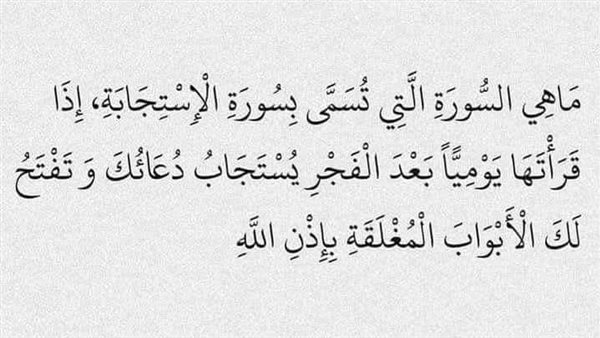 مَاهِي السُّورَةِ الَّتِي تُسَمَّى بِسُورَةِ الْإِسْتِجَابَةِ، إِذَا
قَرَأْتَهَا يَوْمِيًّاً بَعْدَ الْفَجْرِ يُسْتَجَابُ دُعَائُكَ وَ تَفْتَحُ
لَكَ الْأَبْوَابَ الْمُغْلَقَةِ بِإِذْنِ اللَّهِ